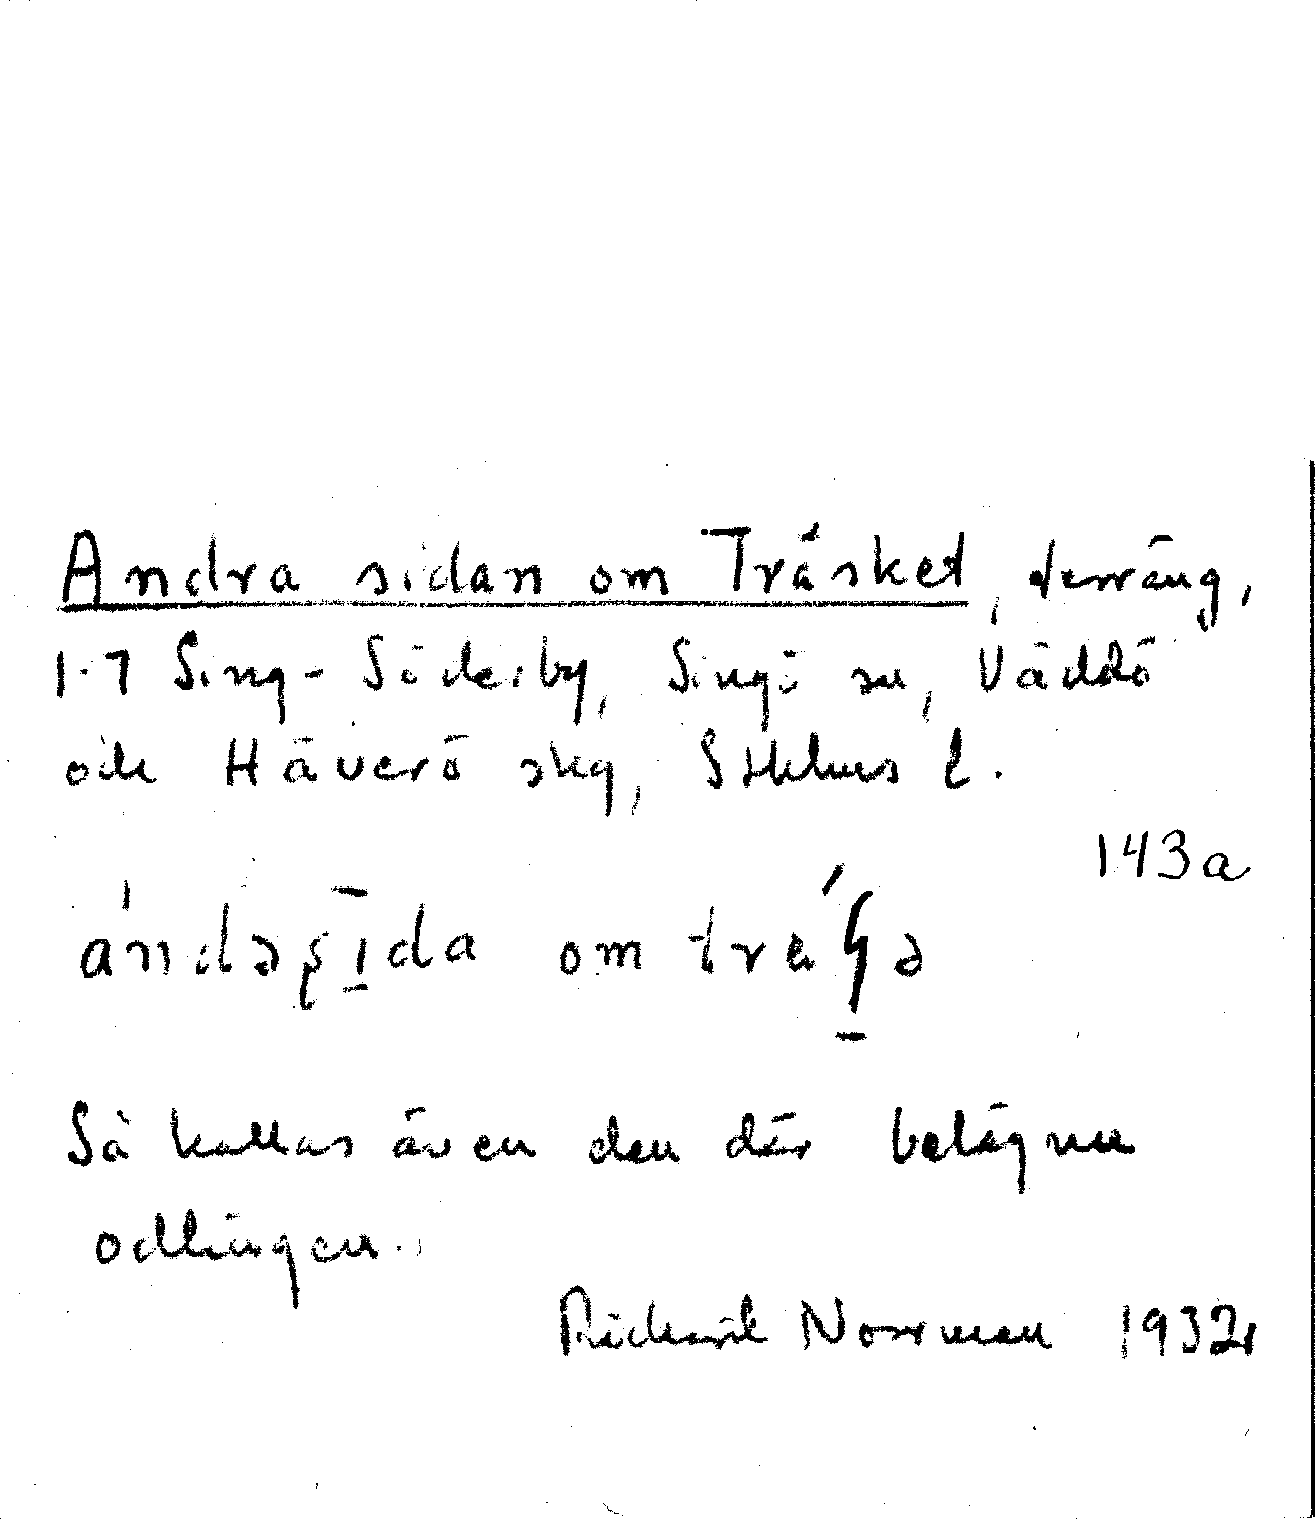 Andra sidan om Träsket, terräng,
1-7 Sing-Söderby, Singö sn, Väddö
och Häverö skg, Sthlms l.
143a
ándəşīda om tre
Så kallas även den där belägna
odlingen.
Richard Norrman 1932